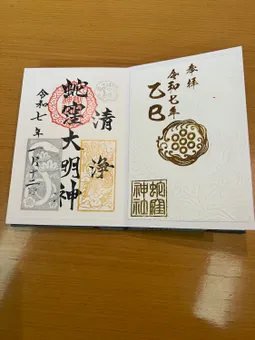 奉拝
令和七年
乙巳
蛇窪
神社
清浄
蛇窪大明神
令和七年一月十二日